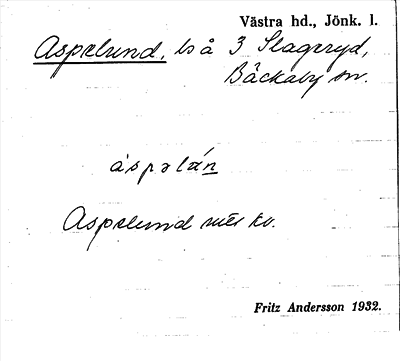 Västra hd., Jönk. l.
Aspelund, ls å 3 Slageryd,
Bäckaby sn.
Aspelund
Fritz Andersson 1932.